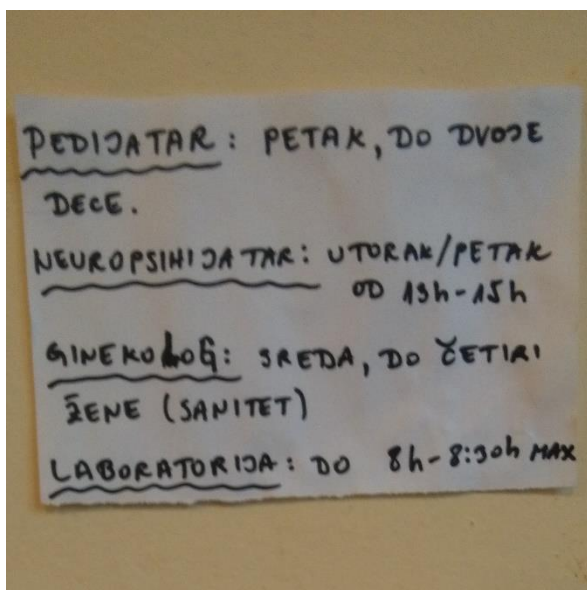 PEDIJATAR: PETAK, DO DVOJE
DECE.
NEUROPSIHIJATAR: UTORAK/PETAK
OD 13h-15h
GINEKOLOG: SREDA, DO ČETIRI
ŽENE (SANITET)
LABORATORIJA: DO 8h-8:30h MAX